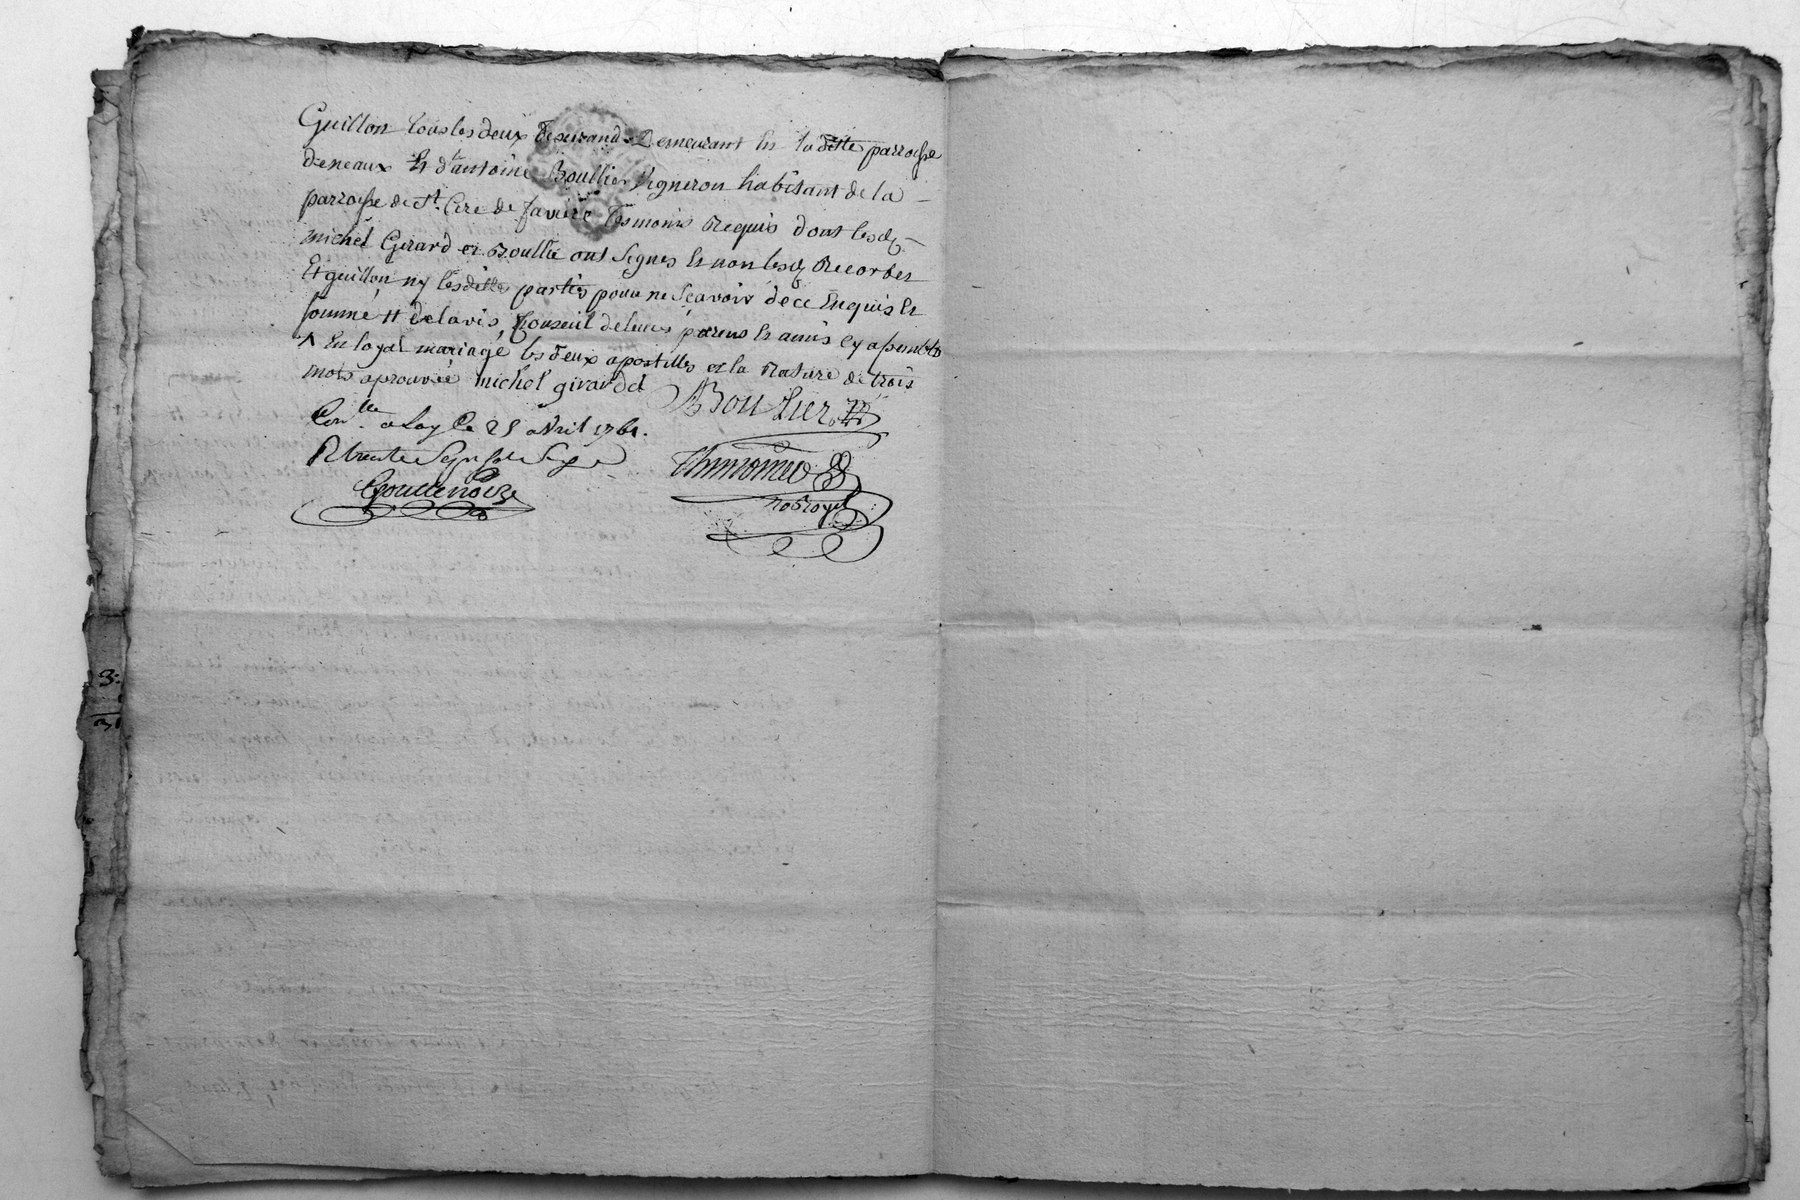 Guillon tous les deux Tisserands Demeurant En la ditte parroisse
deneaux Et d'antoine Boullier Vigneron habitant de la
parroisse de St. Cire de favière Tesmoins Requis dont lesd.
michel Girard et Boullie ont Signes Et non lesd. Recorbet
Et guillon ny lesditte parties pour ne Scavoir de ce Enquis Et
sommé # de lavis, Conseil de leurs parens Et amis ey assemblés
^ En loyal mariage les deux apostilles et la Rature de trois
mots aprouvée michel girardd
ABoullier
Con.lle a Lay Le 25 avril 1761.
Thimonier
Goutenoire
no Royal
3.
31